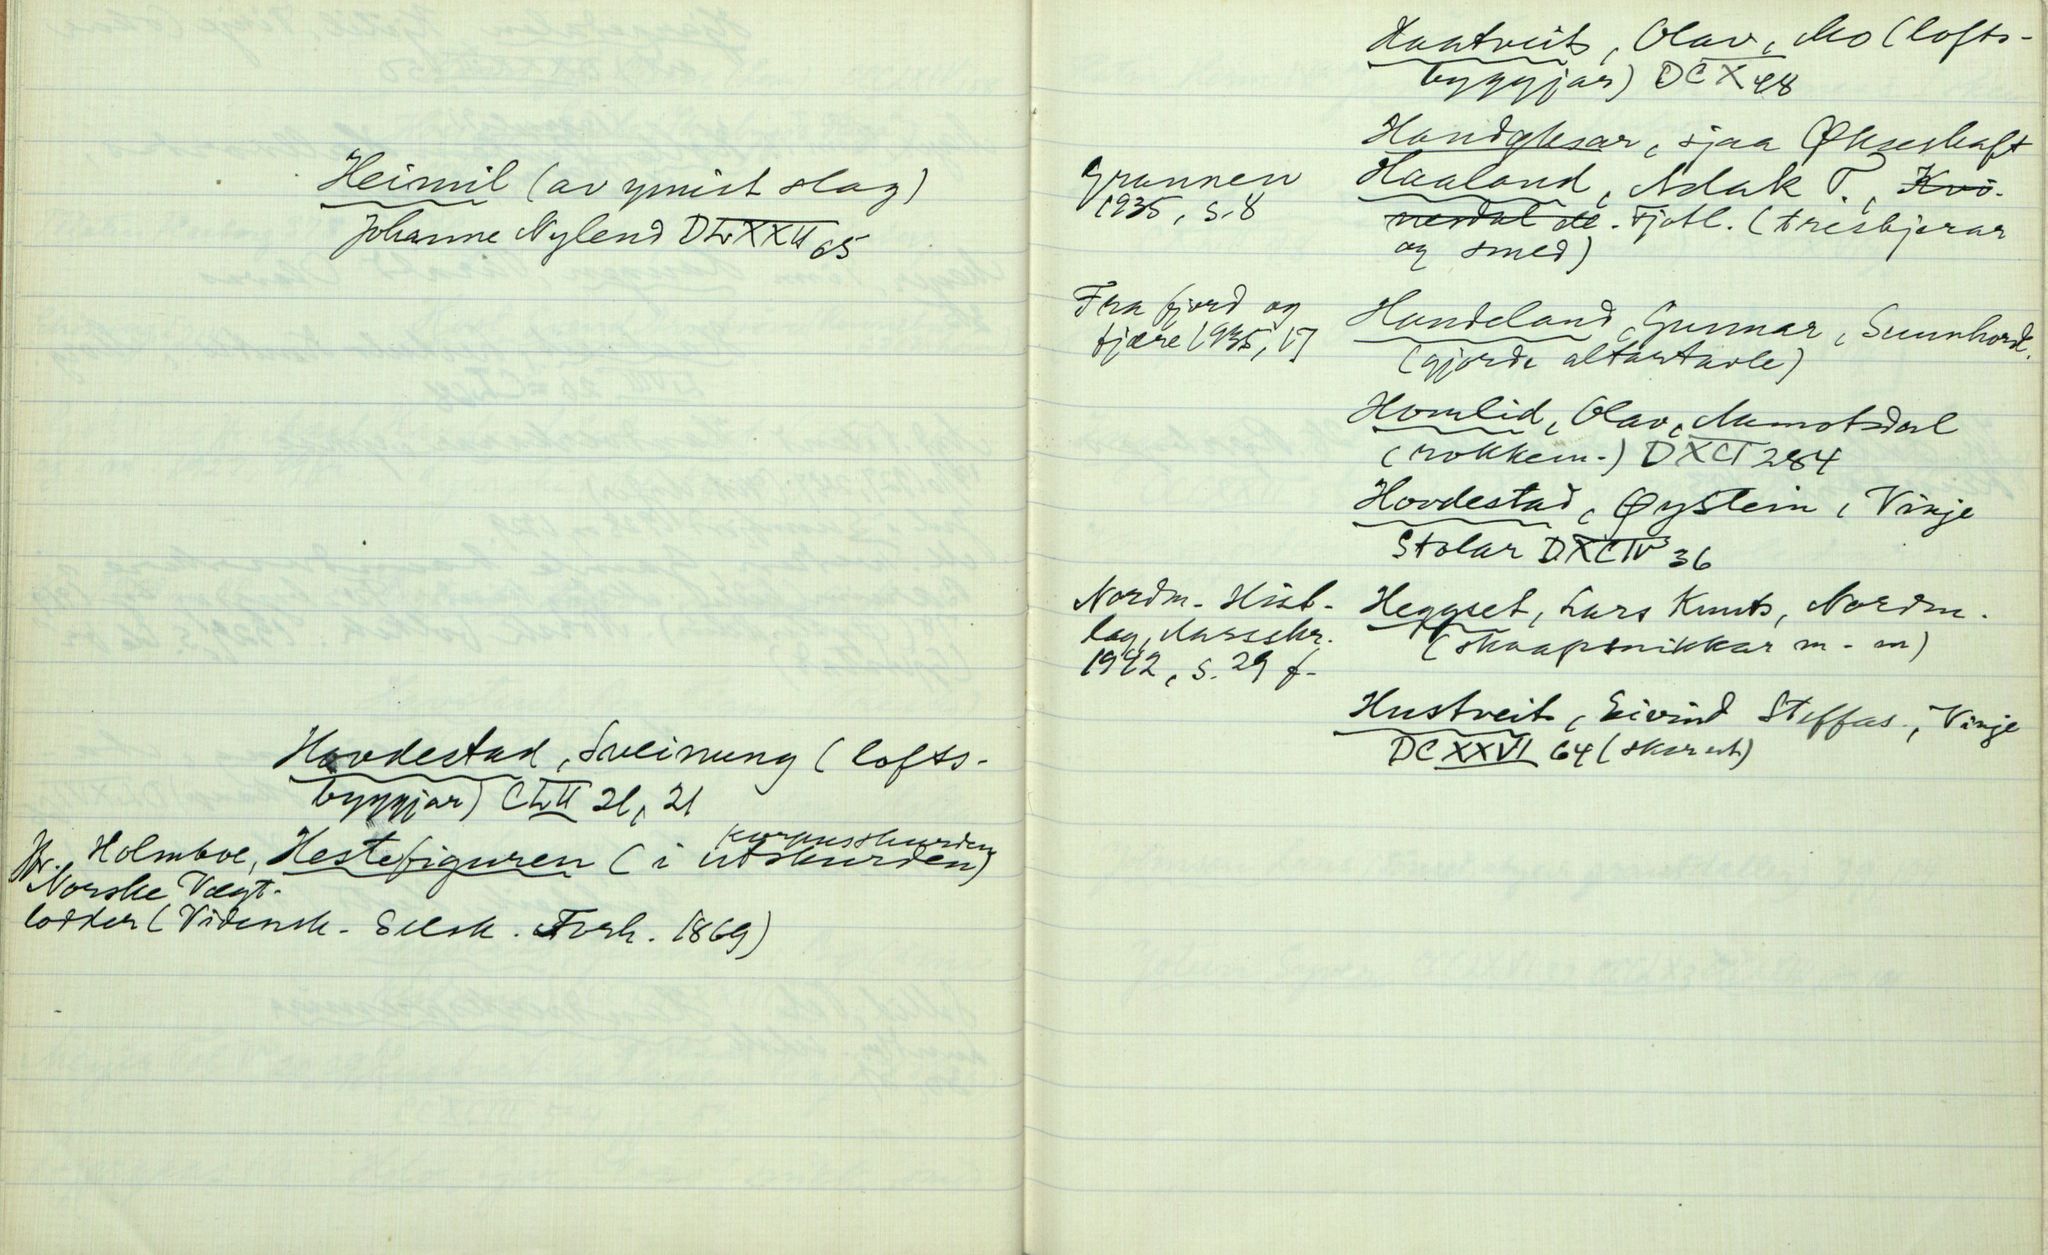 Heimil (av ymist slag)
Johanne Nylend DLXXII 65
Hovdestad, Sveinung (lofts-
byggjar) CLII 21, 21
Holmboe, Hestefiguren (i utskurden)
Norske Vægt-
lodder (Vidensk. Selsk. Forh. 1869)
Haatveit, Olav, Mo (lofts-
byggjar) DCX 48
Handøksar, sjaa Økseskaft
Grannen
1935, s. 8
Haaland, Adak T, Kvi-
nesdal Fjotl. (treskjerar
og smed)
Fra fjord og
fjære 1935, 17
Handeland, Gunnar, Sunnhordl.
(gjorde altartavle)
Homlid, Olav, Aamotsdal
(rokkem.) DXCI 284
Hovdestad, Øystein, Vinje
Stolar DXCIV 36
Nordm. Hist.
lag, Aarsskr.
1942, s. 29 f.
Heggset, Lars Knuts, Nordm.
(skaapsnikkar m. m)
Hustveit, Eivind Steffas., Vinje
DCXXVI 64 (skar ut)